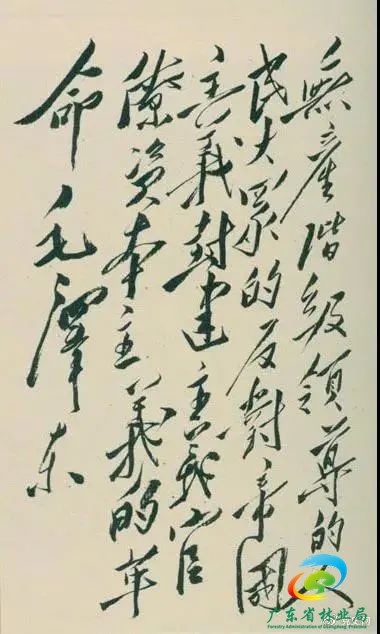 無產階級領導的人
民大眾的反對帝國
主義封建主義官
僚資本主義的革
命 毛澤东
广东省林业局
Forestry Administration of Guangdong Province